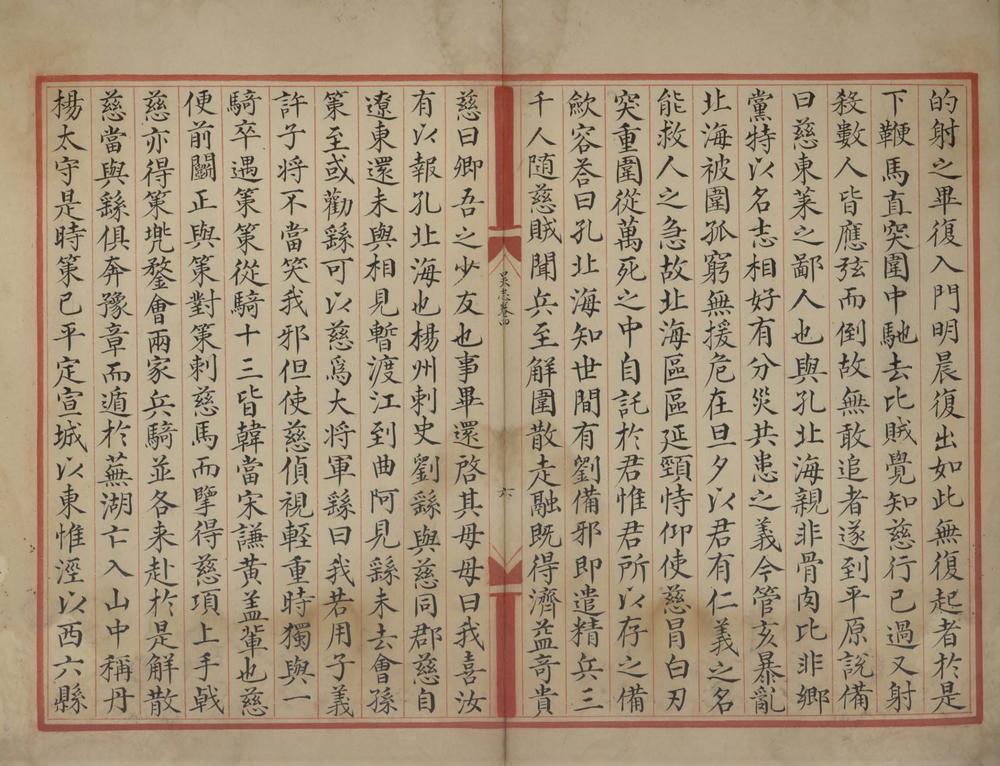 的射之畢復入門明晨復出如此無復起者於是
下鞭馬直突圍中馳去比賊覺知慈行已過又射
殺數人皆應弦而倒故無敢追者遂到平原說備
曰慈東萊之鄙人也與孔北海親非骨肉比非鄉
黨特以名志相好有分災共患之義今管亥暴亂
北海被圍孤窮無援危在旦夕以君有仁義之名
能救人之急故北海區區延頸恃仰使慈冒白刃
突重圍從萬死之中自託於君惟君所以存之備
歛容荅曰孔北海知世間有劉備邪即遣精兵三
千人随慈賊聞兵至解圍散走融既得濟益竒貴
吴志卷四
六
慈曰卿吾之少友也事畢還啓其母母曰我喜汝
有以報孔北海也楊州刺史劉繇與慈同郡慈自
遼東還未與相見暫渡江到曲阿見繇未去會孫
策至或勸繇可以慈爲大将軍繇曰我若用子義
許子将不當笑我邪但使慈偵視輕重時獨與一
騎卒遇策策從騎十三皆韓當宋謙黄盖輩也慈
便前鬭正與策對策刺慈馬而擥得慈項上手戟
慈亦得策兠鍪會兩家兵騎並各来赴於是解散
慈當與繇俱奔豫章而遁於蕪湖亡入山中稱丹
楊太守是時策已平定宣城以東惟涇以西六縣